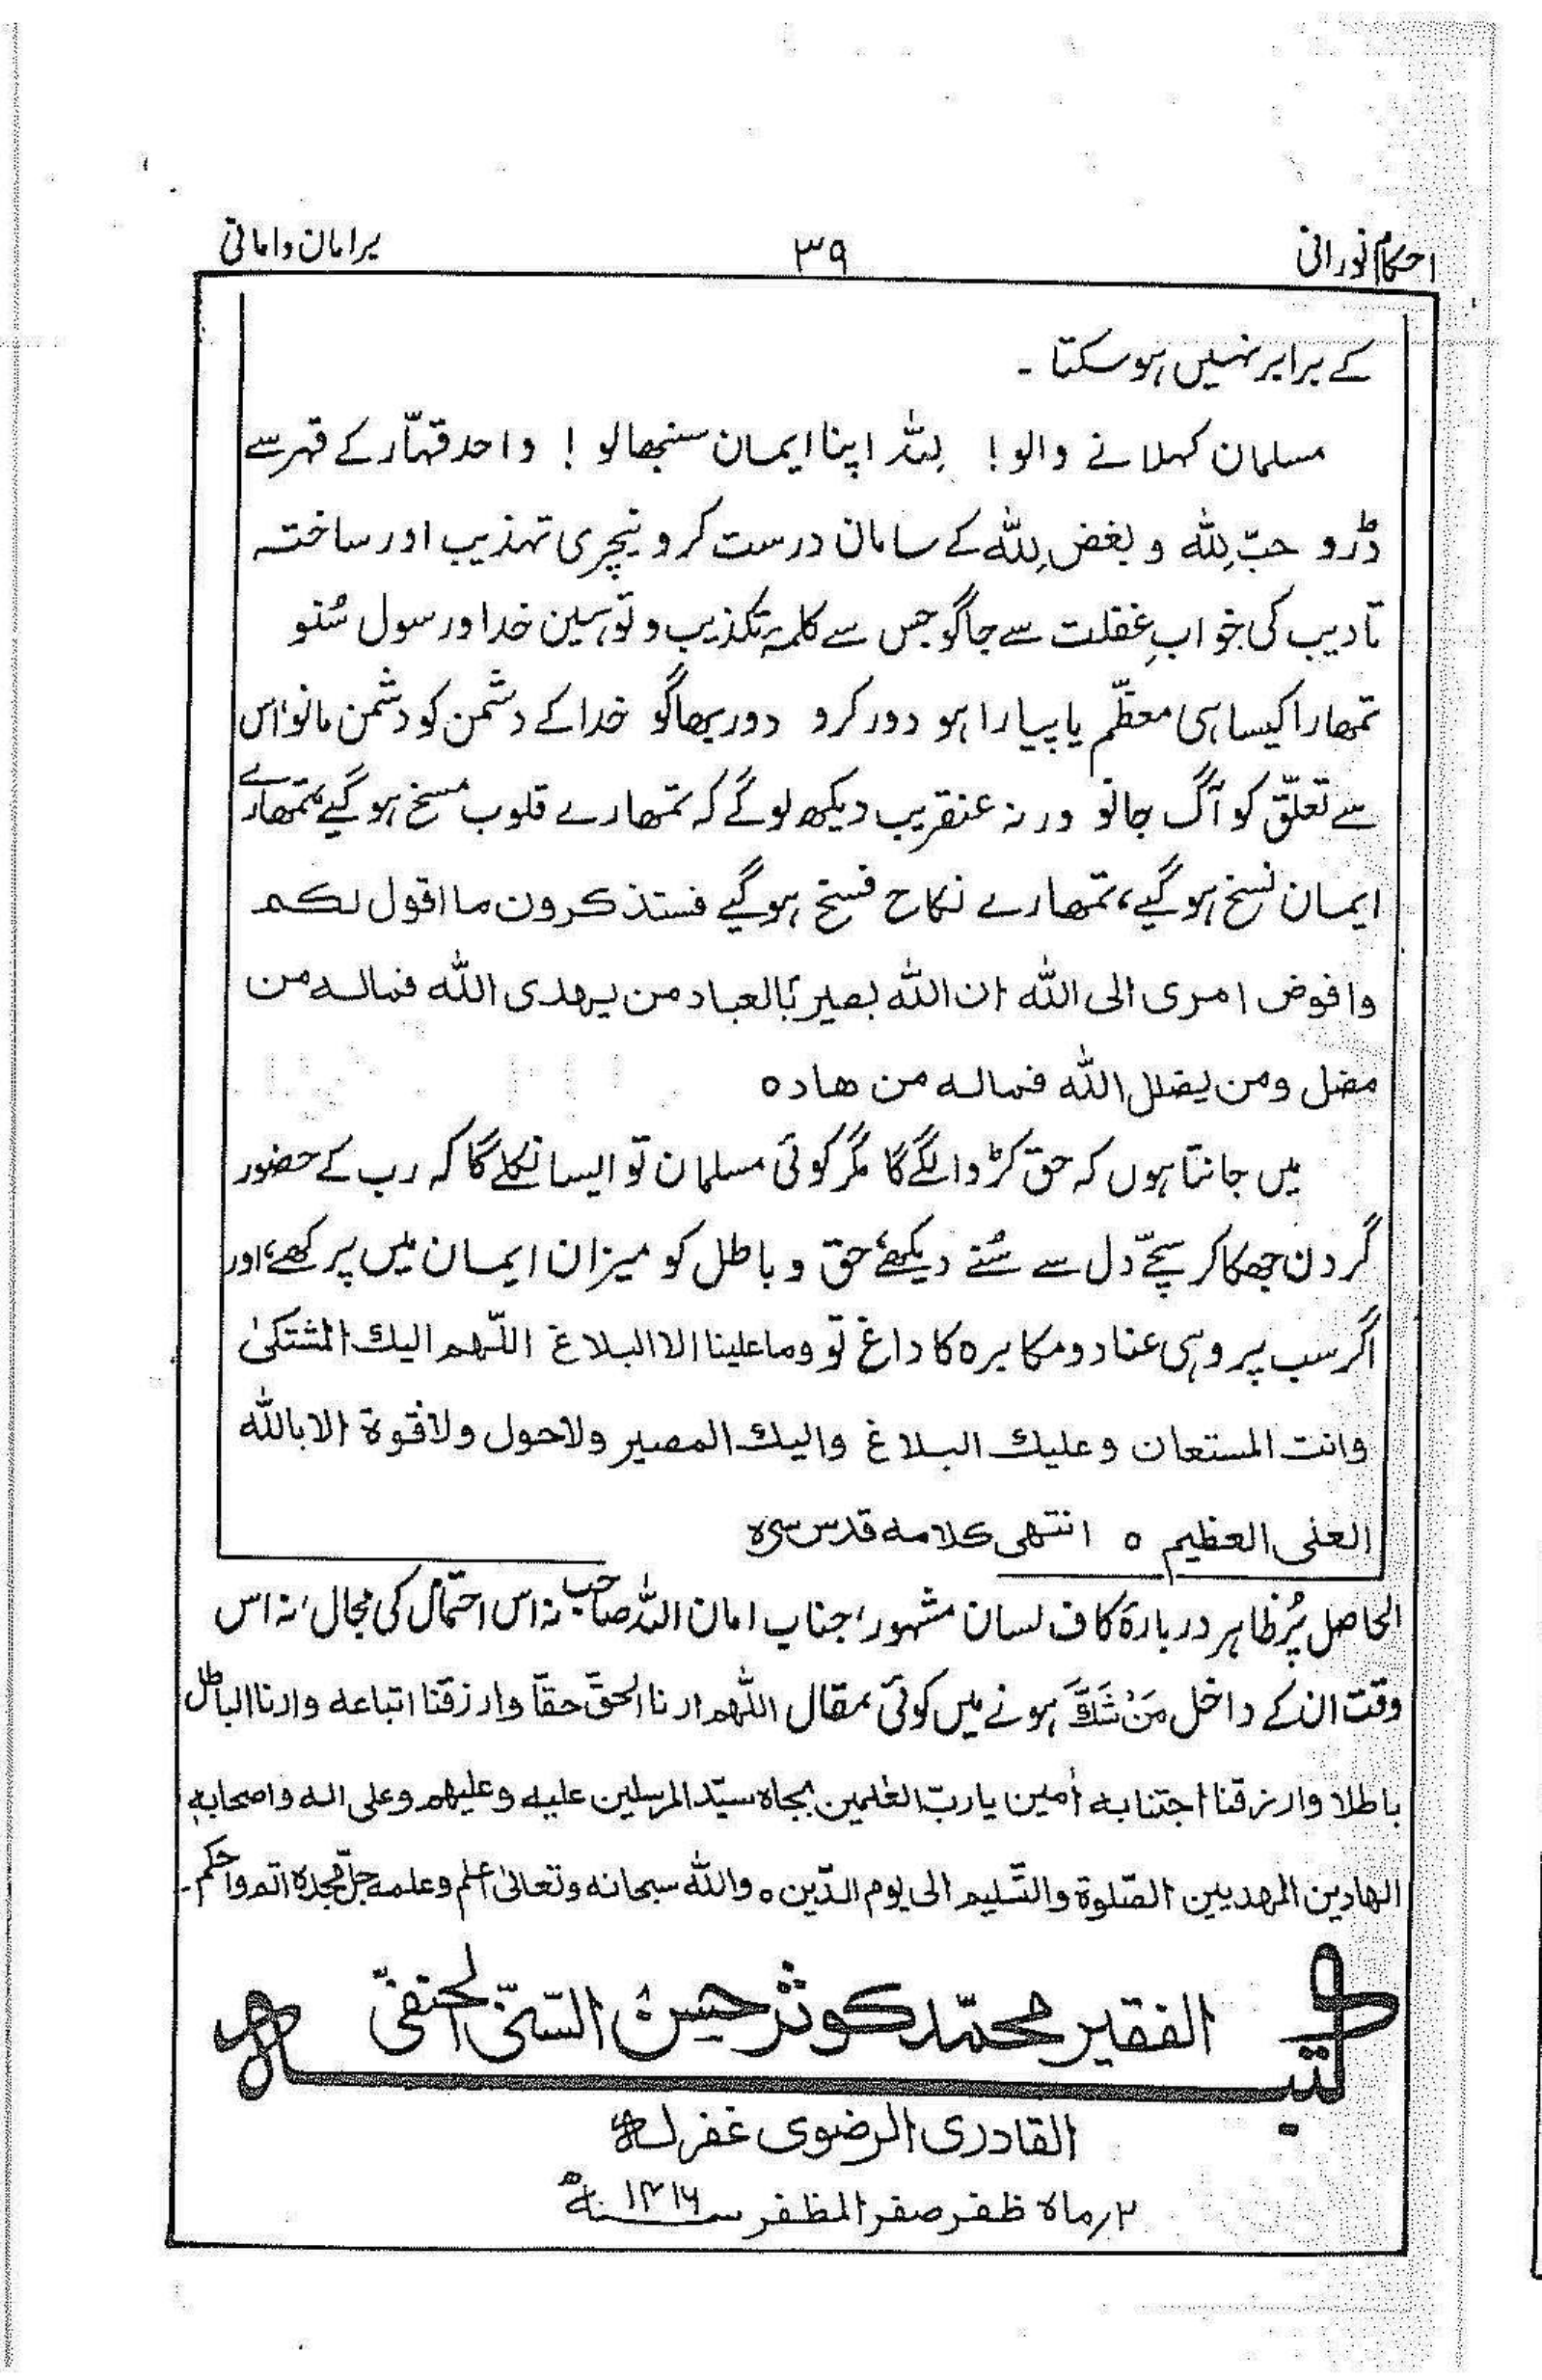 احکام نورانی ۳۹ برامان و امانی
کے برابر نہیں ہو سکتا ۔
مسلمان کہلانے والو ! للہ اپنا ایمان سنبھالو ! واحد قہّار کے قہر سے
ڈرو حبّ لِلّٰہ و بغض لِلّٰہ کے سامان درست کرو نیچری تہذیب اور ساختہ
تادیب کی خوابِ غفلت سے جاگو جس سے کلمۂ تکذیب و توہین خدا و رسول سُنو
تمھارا کیسا ہی معظّم یا پیارا ہو دور کرو دور بھاگو خدا کے دشمن کو دشمن مانو، اس
سے تعلّق کو آگ جانو ورنہ عنقریب دیکھ لو گے کہ تمھارے قلوب مسخ ہو گیے، تمھارے
ایمان نسخ ہو گیے، تمھارے نکاح فسخ ہو گیے فستذکرون ما اقول لکم
وافوض امری الی اللّٰه ان اللّٰه بصیر بالعباد من یهدی اللّٰه فماله من
مضل ومن یضلل اللّٰه فماله من هاد ه
میں جانتا ہوں کہ حق کڑوا لگے گا مگر کوئی مسلمان تو ایسا نکلے گا کہ رب کے حضور
گردن جھکا کر سچّے دل سے سُنے دیکھے، حق و باطل کو میزان ایمان میں پرکھے، اور
اگر سب پر وہی عناد و مکابرہ کا داغ تو وما علینا الا البلاغ اللّٰهم الیك المشتکیٰ
وانت المستعان وعلیك البلاغ والیك المصیر ولا حول ولا قوة الا باللّٰه
العلی العظیم ه انتهی کلامه قدس سره
الحاصل پُر ظاہر دربارۂ کاف لسان مشہور، جناب امان اللہ صاحب نہ اس احتمال کی مجال، نہ اس
وقت ان کے داخل مَنْ شَكَّ ہونے میں کوئی مقال اللّٰهم ارنا الحقّ حقّا وارزقنا اتباعه وارنا الباطل
باطلا وارزقنا اجتنابه اٰمین یا ربّ العٰلمین بجاه سیّد المرسلین علیه وعلیهم وعلی اله واصحابه
الهادین المهدیین الصّلوة والتّسلیم الی یوم الدّین ه واللّٰه سبحانه وتعالیٰ اعلم وعلمه جلّ مجده اتم واحکم ۔
کتبـــه الفقیر محمّد کوثر حسن السّنّی الحنفیّ
القادری الرضوی غفر له
۲؍ ماہ ظفر صفر المظفر سنہ ۱۴۱۶ھ